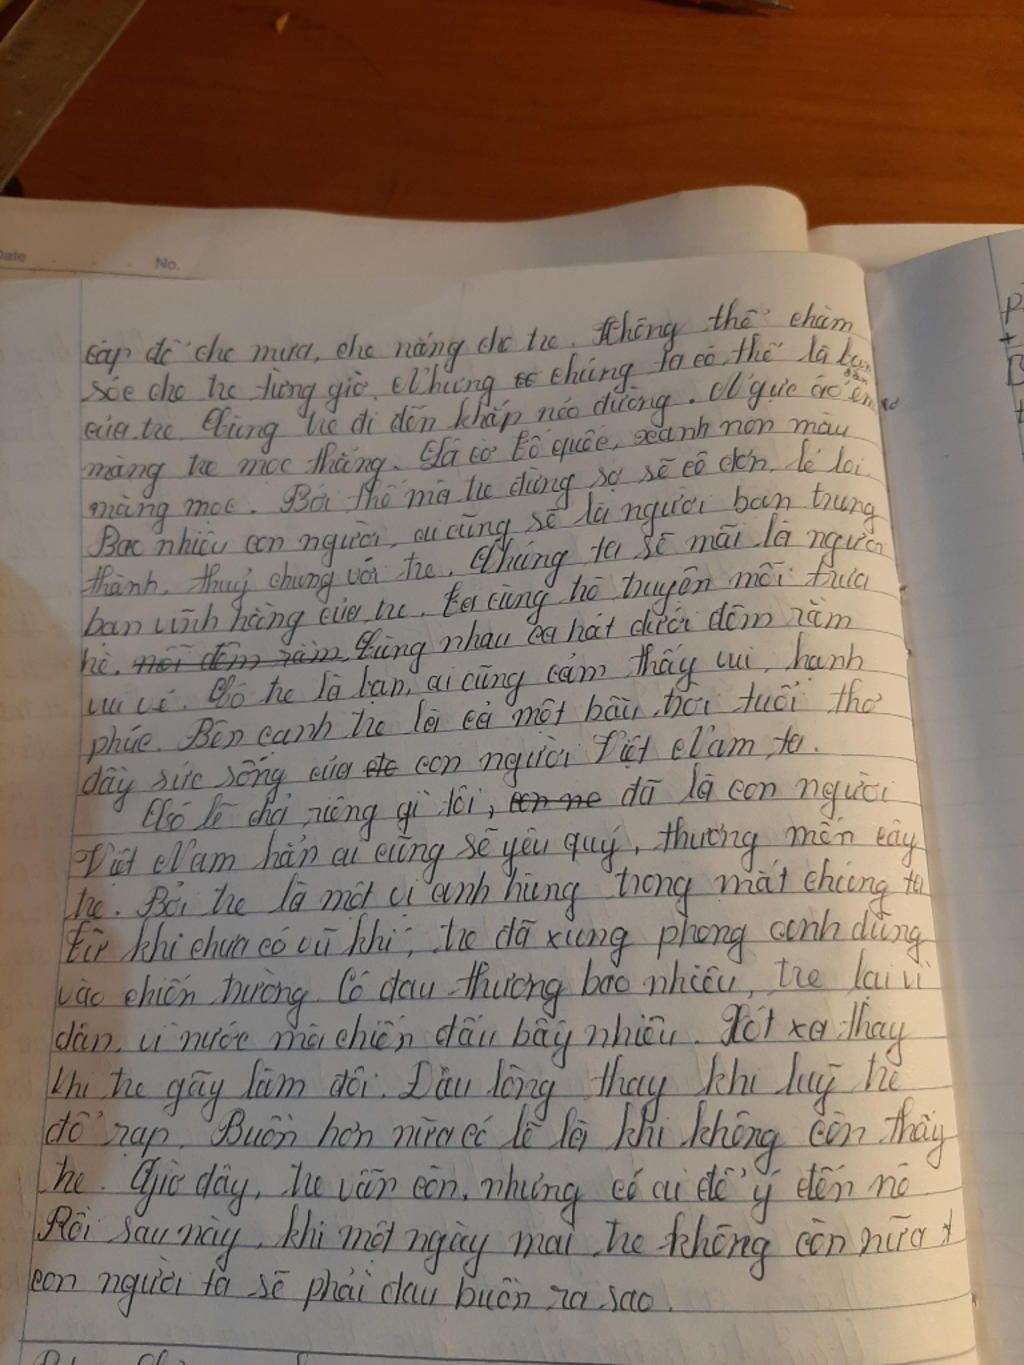 Date No.
cáp để che mưa, che nắng cho tre. Không thể chăm
sóc cho tre từng giờ. Nhưng chúng ta có thể là bạn
của tre. Cùng tre đi đến khắp nẻo đường. Ngực áo em
màng tre mọc thẳng. Lá cờ Tổ quốc, xanh non màu
màng mọc. Bởi thế mà tre đừng sợ sẽ cô đơn, lẻ loi.
Bao nhiêu con người, ai cũng sẽ là người bạn trung
thành, thuỷ chung với tre. Chúng ta sẽ mãi là người
bạn vĩnh hằng của tre. Ta cùng hò truyện mỗi trưa
hè, mỗi đêm rằm. Cùng nhau ca hát dưới đêm rằm
vui vẻ. Có tre là bạn, ai cũng cảm thấy vui, hạnh
phúc. Bên cạnh tre là cả một bầu trời tuổi thơ
đầy sức sống của con người Việt Nam ta.
Có lẽ chả riêng gì tôi, con ne đã là con người
Việt Nam hẳn ai cũng sẽ yêu quý, thương mến cây
tre. Bởi tre là một vị anh hùng trong mắt chúng ta
Từ khi chưa có vũ khí, tre đã xung phong anh dũng
vào chiến trường. Có đau thương bao nhiêu, tre lại vì
dân, vì nước mà chiến đấu bấy nhiêu. Xót xa thay
khi tre gãy làm đôi. Đau lòng thay khi luỹ tre
đổ rạp. Buồn hơn nữa có lẽ là khi không còn thấy
tre. Giờ đây, tre vẫn còn, nhưng có ai để ý đến nó
Rồi sau này, khi một ngày mai tre không còn nữa
con người ta sẽ phải đau buồn ra sao.